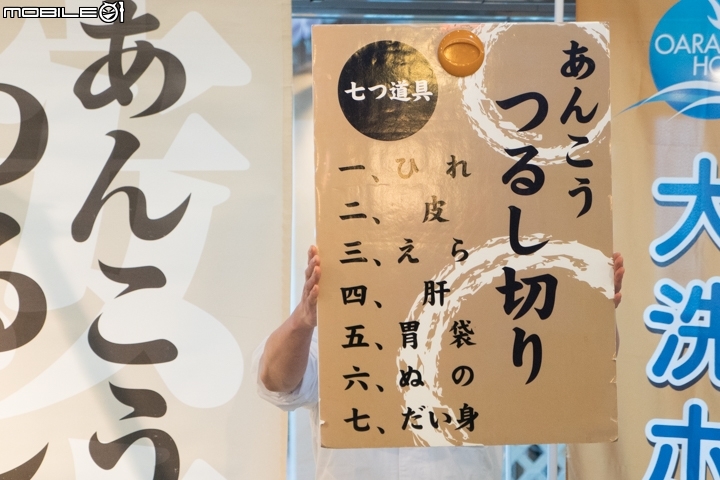 MOBILE01
あんこう
つるし切り
七つ道具
一、ひれ
二、皮
三、えら
四、肝
五、胃袋
六、ぬの
七、だいい身
あんこう
つるし
OARA
HO
大洗ホ